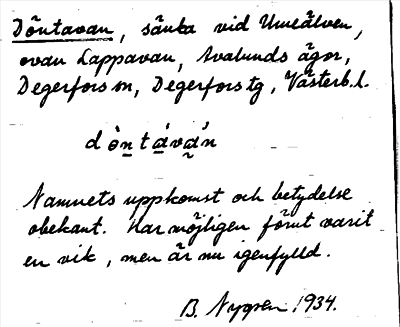 Döntavan, sänka vid Umeälven,
ovan Lappavan, Avalunds ägor,
Degerfors sn, Degerfors tg, Västerb.l.
dòntáván
Namnets uppkomst och betydelse
obekant. Har möjligen förut varit
en vik, men är nu igenfylld.
B. Nygren 1934.